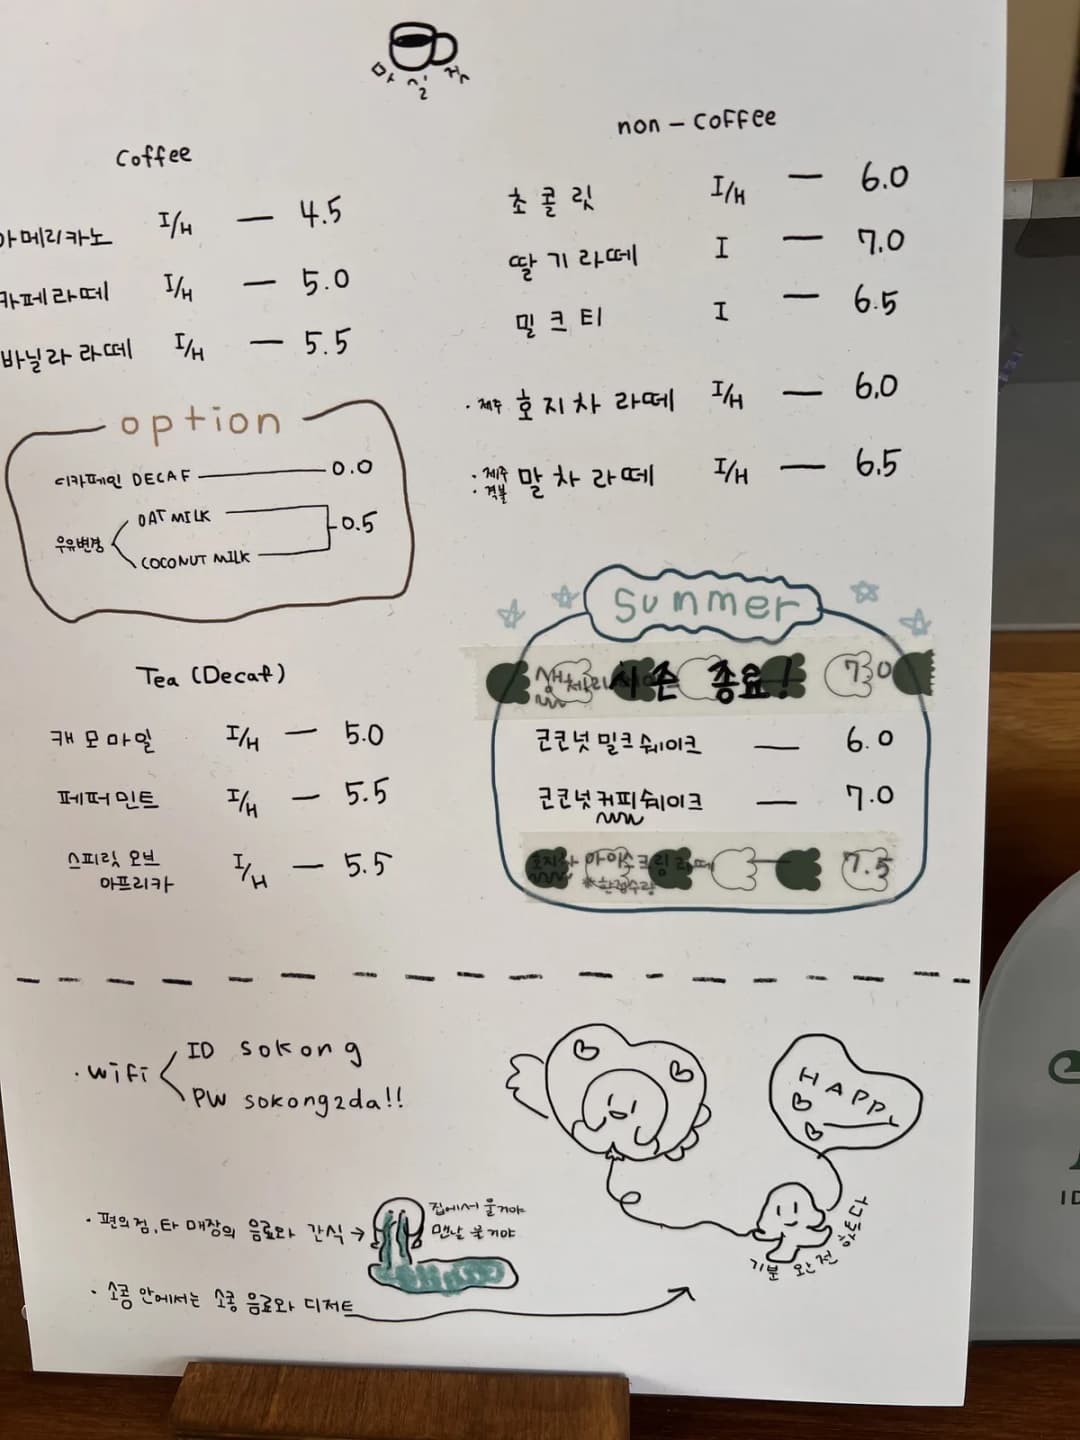 마실것
coffee
아메리카노 I/H — 4.5
카페라떼 I/H — 5.0
바닐라 라떼 I/H — 5.5
option
디카페인 DECAF — 0.0
우유변경 OAT MILK
COCONUT MILK
0.5
Tea (Decaf)
캐모마일 I/H — 5.0
페퍼민트 I/H — 5.5
스피릿 오브
아프리카 I/H — 5.5
non - coffee
초콜릿 I/H — 6.0
딸기라떼 I — 7.0
밀크티 I — 6.5
· 제주 호지차 라떼 I/H — 6.0
· 제주
· 격불 말차 라떼 I/H — 6.5
summer
시즌 종료! 7.0
코코넛 밀크 쉐이크 — 6.0
코코넛 커피 쉐이크 — 7.0
아이스크림 라떼 — 7.5
*한정수량
· wifi ID sokong
PW sokong2da!!
HAPPY
· 편의점, 타 매장의 음료와 간식 →
집에서 울거야
맨날 울거야
· 소콩 안에서는 소콩 음료와 디저트
기분 완전 핫도다